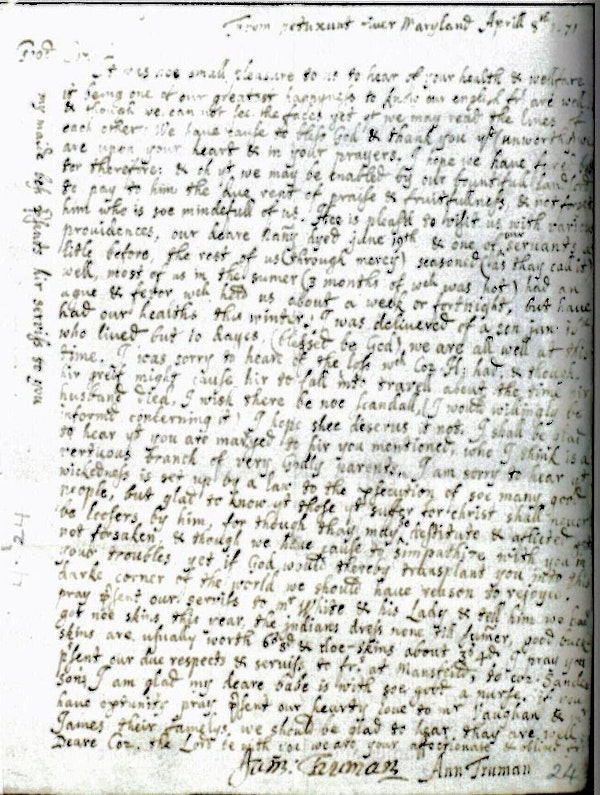 From petuxunt river Maryland Aprill 8th 71
It was noe small pleasure to us to hear of your health & wellfare
it being one of our greatest happyness to know our english frs are well
& though we can not see the faces yet yt we may read the lines of
each other. We have cause to bless God & thank you yt unworthy we
are upon your heart & in your prayers. I hope we have
for therefire: & oh yt we may be enabled by our fruitfull land
to pay to him the due rent of praise & fruitfullness, & not forget
him who is soe mindefull of us. Hee is pleasd to visit us with various
providences, our deare Nany dyed June 19th & one of our servants a
litle before, the rest of us (through mercy) seasoned (as thay call it)
well, most of us in the sumer (3 months of wch was hot) had an
ague & fever wch held us about a week or fortnight, but have
had our healths this winter. I was delivered of a son Jan:
who lived but 10 dayes. (blessed be God) we are all well at this
time. I was sorry to heare of the loss wch Coz: Fl: had & though
hir greif might cause hir to fall into travell about the time hir
husband died, I wish there be noe scandall, (I would willingly be
informd concerning it) I hope shee deserves it not. I shall be glad
to hear yt you are maryed to hir you mentioned, who I think is a
vertuous branch of very Godly parents. I am sorry to hear yt
wickedness is set up by a law to the psecution of soe many good
people, but glad to know yt those yt suffer for christ shall never
be loosers by him, for though thay may be destitute & aflicted
not forsaken; & though we have cause to simpathize with you in
your troubles yet if God would thereby transplant you into this
darke corner of the world we should have reason to rejoyce.
pray psent our servis to mr White & his Lady & tell him we have
got noe skins this year, the indians dress none till sumer, good buck
skins are usually worth 6s 8d & doe-skins about 3s 4d. I pray you
psent our due respects & servis to frs at Mansfeild, to coz: Sanders
sons, I am glad my deare babe is with soe good a nurse. if you
have oportunity pray psent our hearty love to mr Vaughan & mr
James their familys, we should be glad to hear thay are well
Deare Coz: the Lord be with you we are your affectionate & obliged
Tho: Truman Ann Truman
my neice
hir servis to you
4.24
24